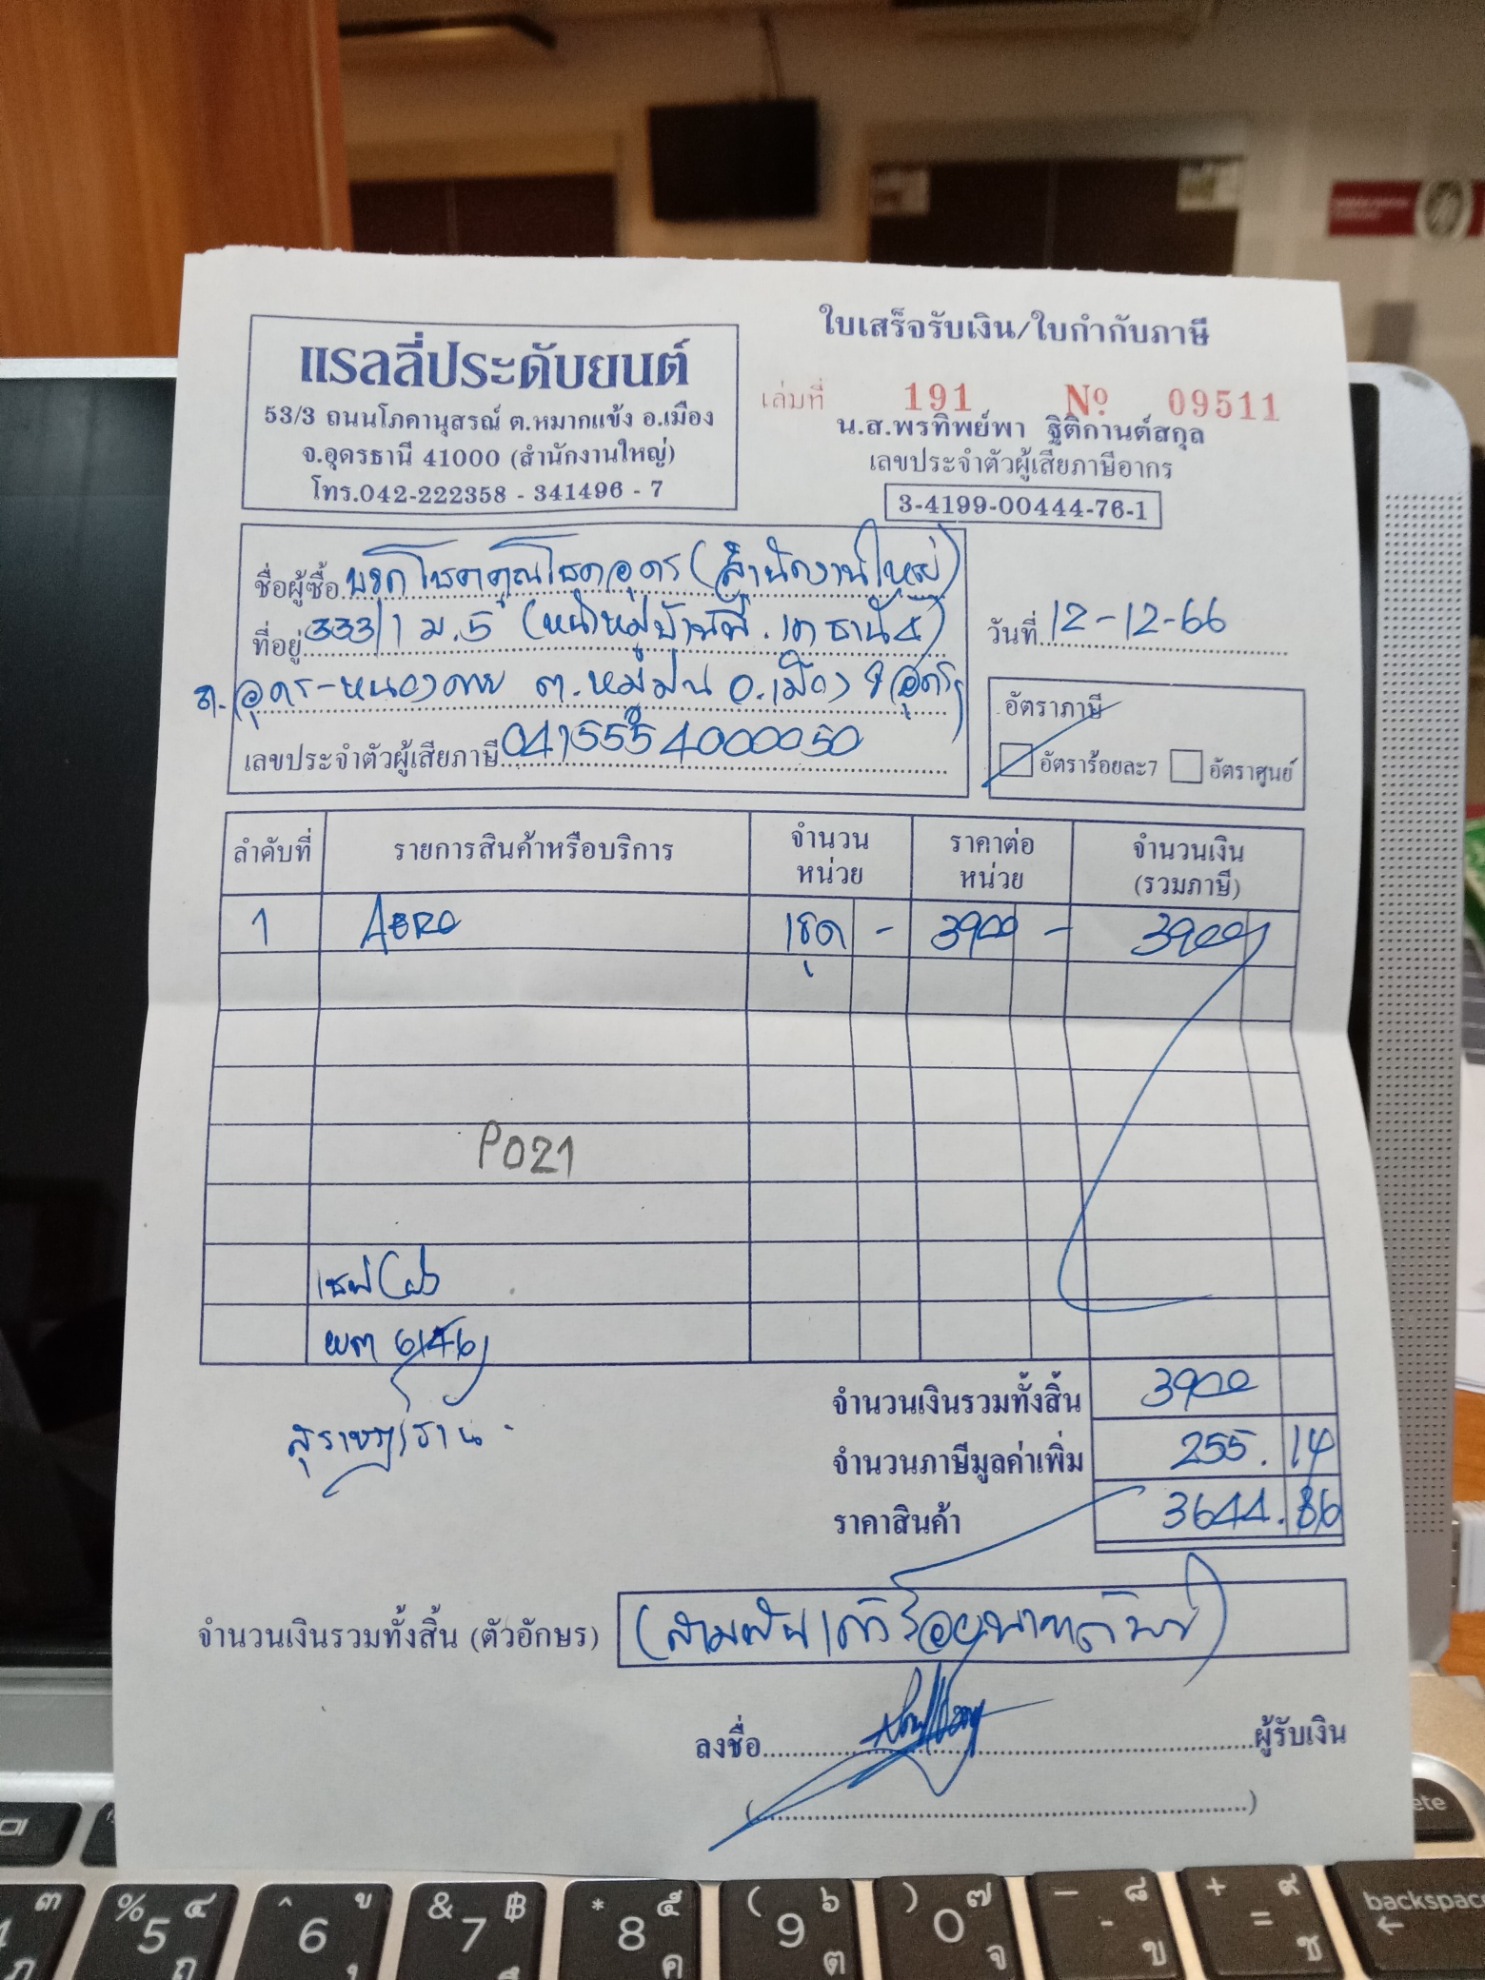 ใบเสร็จรับเงิน/ใบกำกับภาษี
แรลลี่ประดับยนต์
53/3 ถนนโภคานุสรณ์ ต.หมากแข้ง อ.เมือง
จ.อุดรธานี 41000 (สำนักงานใหญ่)
โทร.042-222358 - 341496 - 7
เล่มที่ 191 Nº 09511
น.ส.พรทิพย์พา ฐิติกานต์สกุล
เลขประจำตัวผู้เสียภาษีอากร
3-4199-00444-76-1
ชื่อผู้ซื้อ บจก โชคคูณโชคอุดร (สำนักงานใหญ่)
ที่อยู่ 333/1 ม.5
วันที่ 12-12-66
ถ.อุดร-หนองคาย ต.หมูม่น อ.เมือง จ.อุดร
เลขประจำตัวผู้เสียภาษี 0415554000050
อัตราภาษี
อัตราร้อยละ7 อัตราศูนย์
ลำดับที่ รายการสินค้าหรือบริการ จำนวนหน่วย ราคาต่อหน่วย จำนวนเงิน (รวมภาษี)
1 1ชุด - 3900 - 3900
P021
จำนวนเงินรวมทั้งสิ้น 3900
สุราษฎร์ธานี
จำนวนภาษีมูลค่าเพิ่ม 255.14
ราคาสินค้า 3644.86
จำนวนเงินรวมทั้งสิ้น (ตัวอักษร) (สามพันเก้าร้อยบาทถ้วน)
ลงชื่อ ผู้รับเงิน
% 5 ๔ ถ
^ 6 ู ุ
& 7 ฿ ึ
* 8 ๕ ค
( 9 ๖ ต
) 0 ๗ จ
- ๘ ข
+ = ๙ ช
backspace